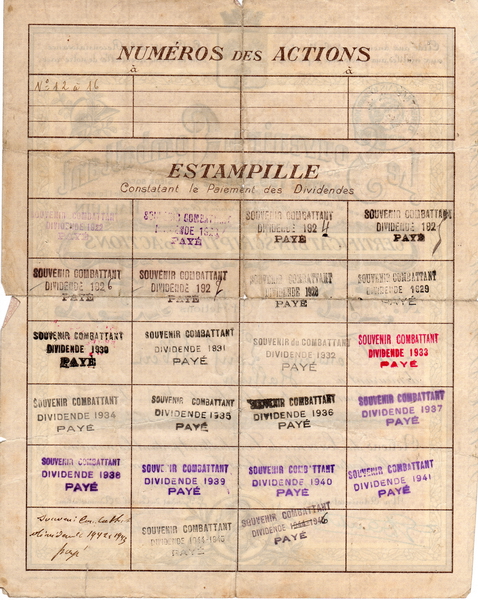 NUMÉROS DES ACTIONS
à à
Nos 12 à 16
ESTAMPILLE
Constatant le Paiement des Dividendes
SOUVENIR COMBATTANT
DIVIDENDE 1922
SOUVENIR COMBATTANT
DIVIDENDE 1923
PAYÉ
SOUVENIR COMBATTANT
DIVIDENDE 1924
PAYÉ
SOUVENIR COMBATTANT
DIVIDENDE 192
PAYÉ
SOUVENIR COMBATTANT
DIVIDENDE 1926
PAYÉ
SOUVENIR COMBATTANT
DIVIDENDE 192
PAYÉ
SOUVENIR COMBATTANT
DIVIDENDE 1928
PAYÉ
SOUVENIR COMBATTANT
DIVIDENDE 1929
PAYÉ
SOUVENIR COMBATTANT
DIVIDENDE 1930
PAYÉ
SOUVENIR COMBATTANT
DIVIDENDE 1931
PAYÉ
SOUVENIR COMBATTANT
DIVIDENDE 1932
PAYÉ
SOUVENIR COMBATTANT
DIVIDENDE 1933
PAYÉ
SOUVENIR COMBATTANT
DIVIDENDE 1934
PAYÉ
SOUVENIR COMBATTANT
DIVIDENDE 1935
PAYÉ
SOUVENIR COMBATTANT
DIVIDENDE 1936
PAYÉ
SOUVENIR COMBATTANT
DIVIDENDE 1937
PAYÉ
SOUVENIR COMBATTANT
DIVIDENDE 1938
PAYÉ
SOUVENIR COMBATTANT
DIVIDENDE 1939
PAYÉ
SOUVENIR COMBATTANT
DIVIDENDE 1940
PAYÉ
SOUVENIR COMBATTANT
DIVIDENDE 1941
PAYÉ
Souvenir Combattant
Dividende 1942 1943
payé
SOUVENIR COMBATTANT
DIVIDENDE 1944-1945
PAYÉ
SOUVENIR COMBATTANT
DIVIDENDE 1946
PAYÉ